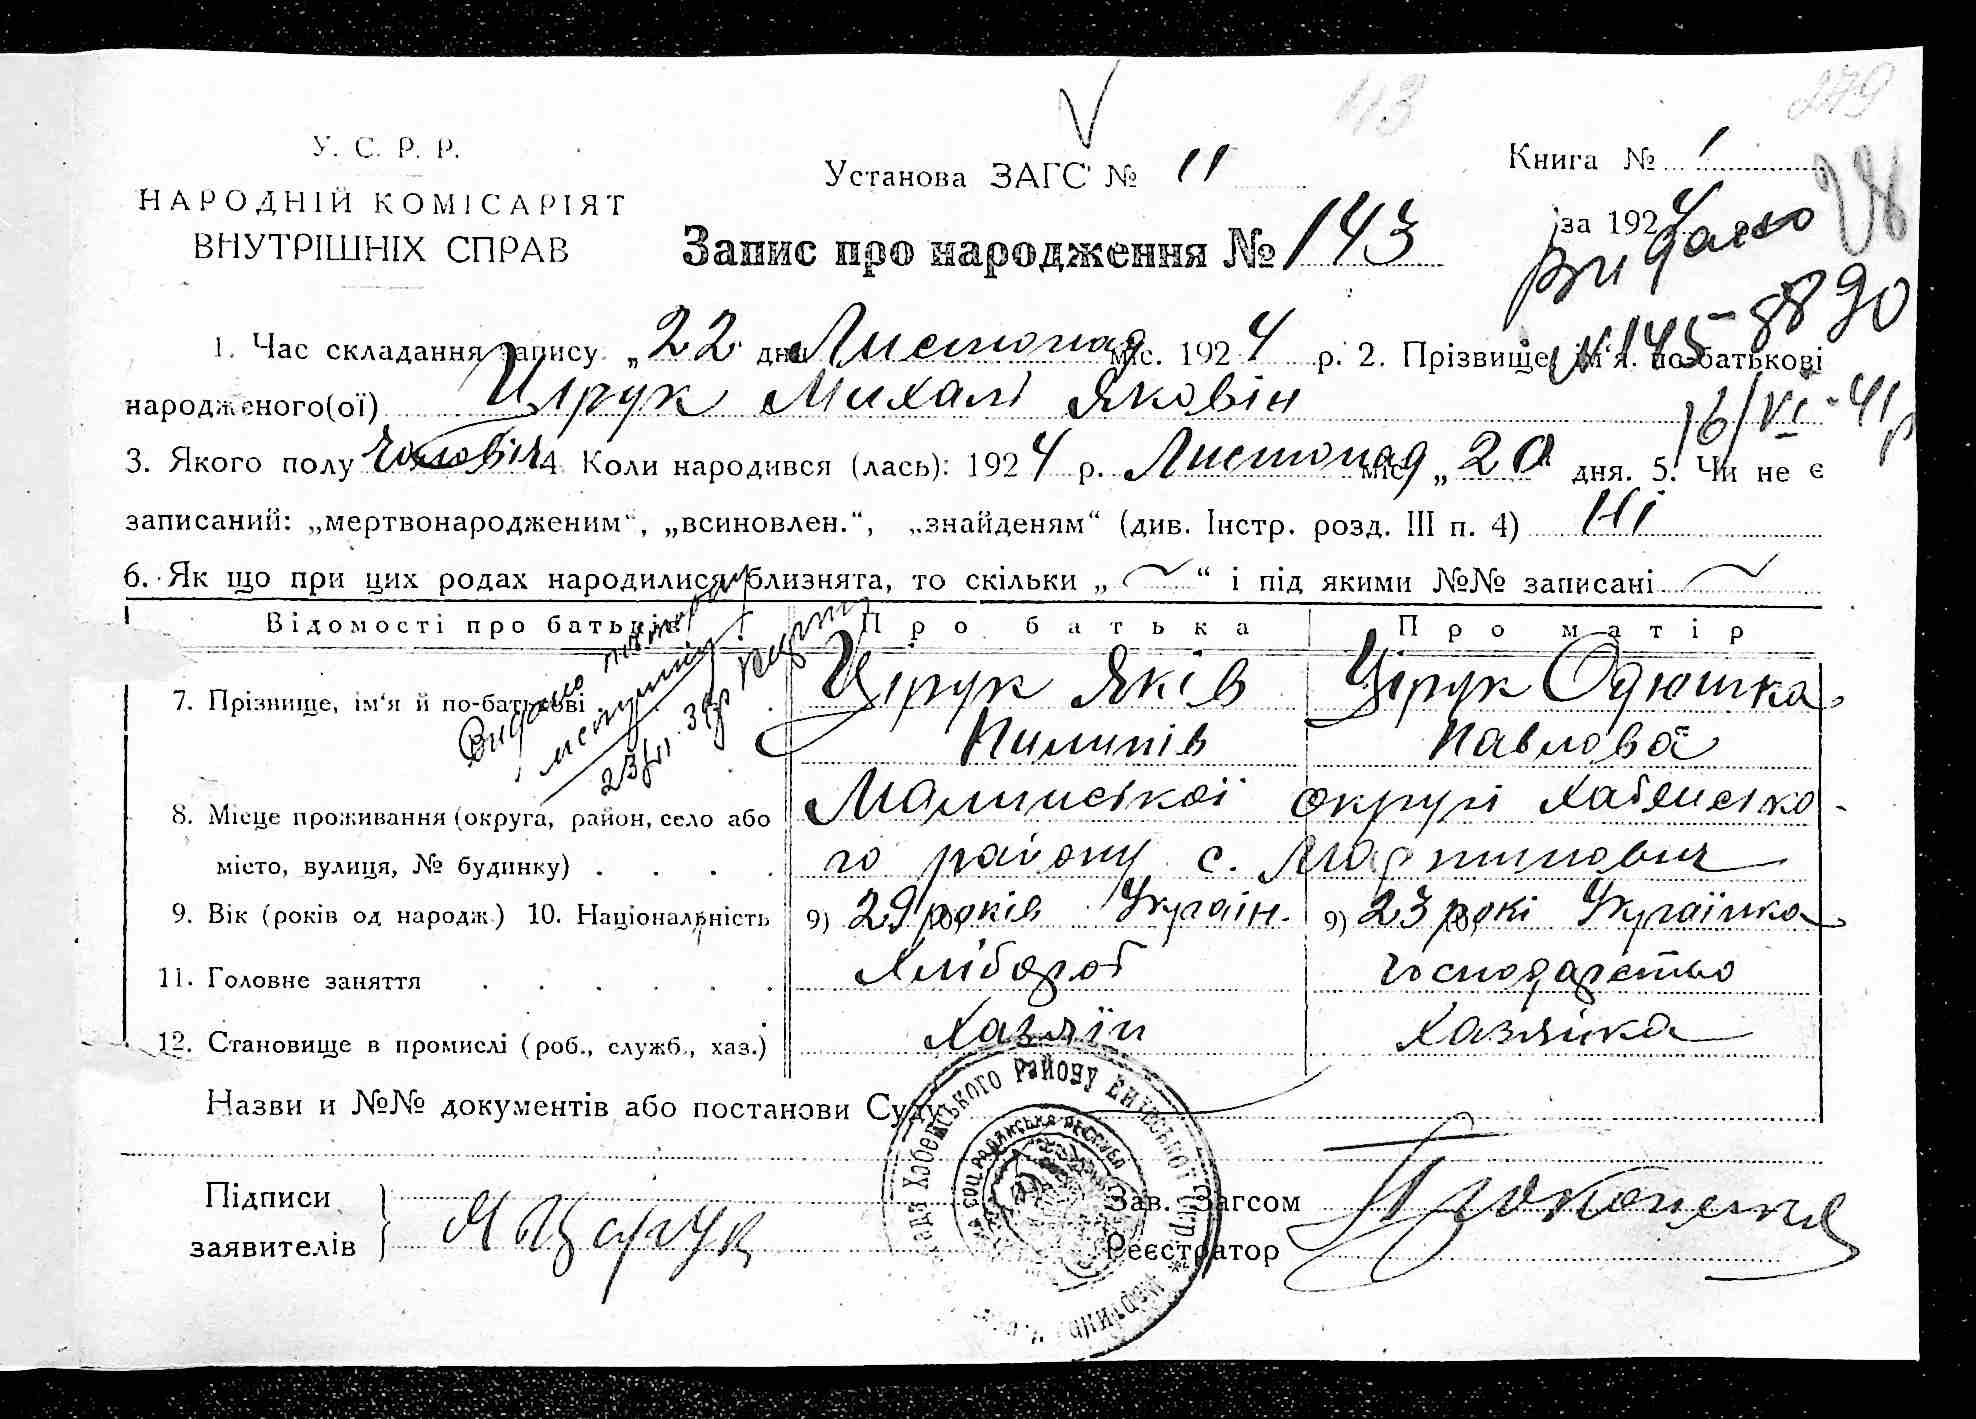 279
113
У. С. Р. Р.
НАРОДНІЙ КОМІСАРІЯТ
ВНУТРІШНІХ СПРАВ
Установа ЗАГС № 11
Книга № 1
за 1924
28
Запис про народження № 143
Видано
№ 145-8890
16/VI-41р
1. Час складання запису „22" дня Листопад міс. 1924 р. 2. Прізвище, ім'я. по-батькові
народженого(ої) Цірук Михалі Яковін
3. Якого полу Чоловіч 4. Коли народився (лась): 1924 р. Листопад міс „20" дня. 5. Чи не є
записаний: „мертвонародженим", „всиновлен.", „знайденям" (див. Інстр. розд. III п. 4) Ні
6. Як що при цих родах народилися близнята, то скільки „ ~ " і під якими №№ записані ~
Відомості про батьків Про батька Про матір
Видано повторну
23/VII 39р
7. Прізвище, ім'я й по-батькові Цірук Яків Цірук Одюшка
Пилипів Павлова
8. Місце проживання (округа, район, село або Малинської округі Хабенсько-
місто, вулиця, № будинку) го району с. Мартинович
9. Вік (років од народж.) 10. Національність 9) 29 років Україн. 9) 23 рокі Українка
11. Головне заняття Хлібороб Господарство
12. Становище в промислі (роб., служб., хаз.) Хазяїн Хазяйка
Назви и №№ документів або постанови Суду
Хабенського Району Київської
Підписи
заявителів } Я Царук
Зав. Загсом
Реєстратор